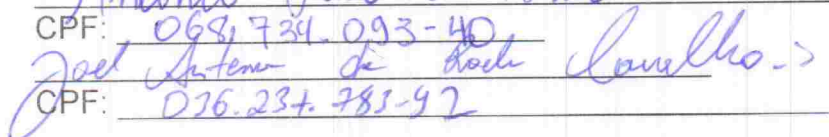 CPF: 068.734.093-40
Joel Antonio da Rocha Carvalho
CPF: 036.237.783-92